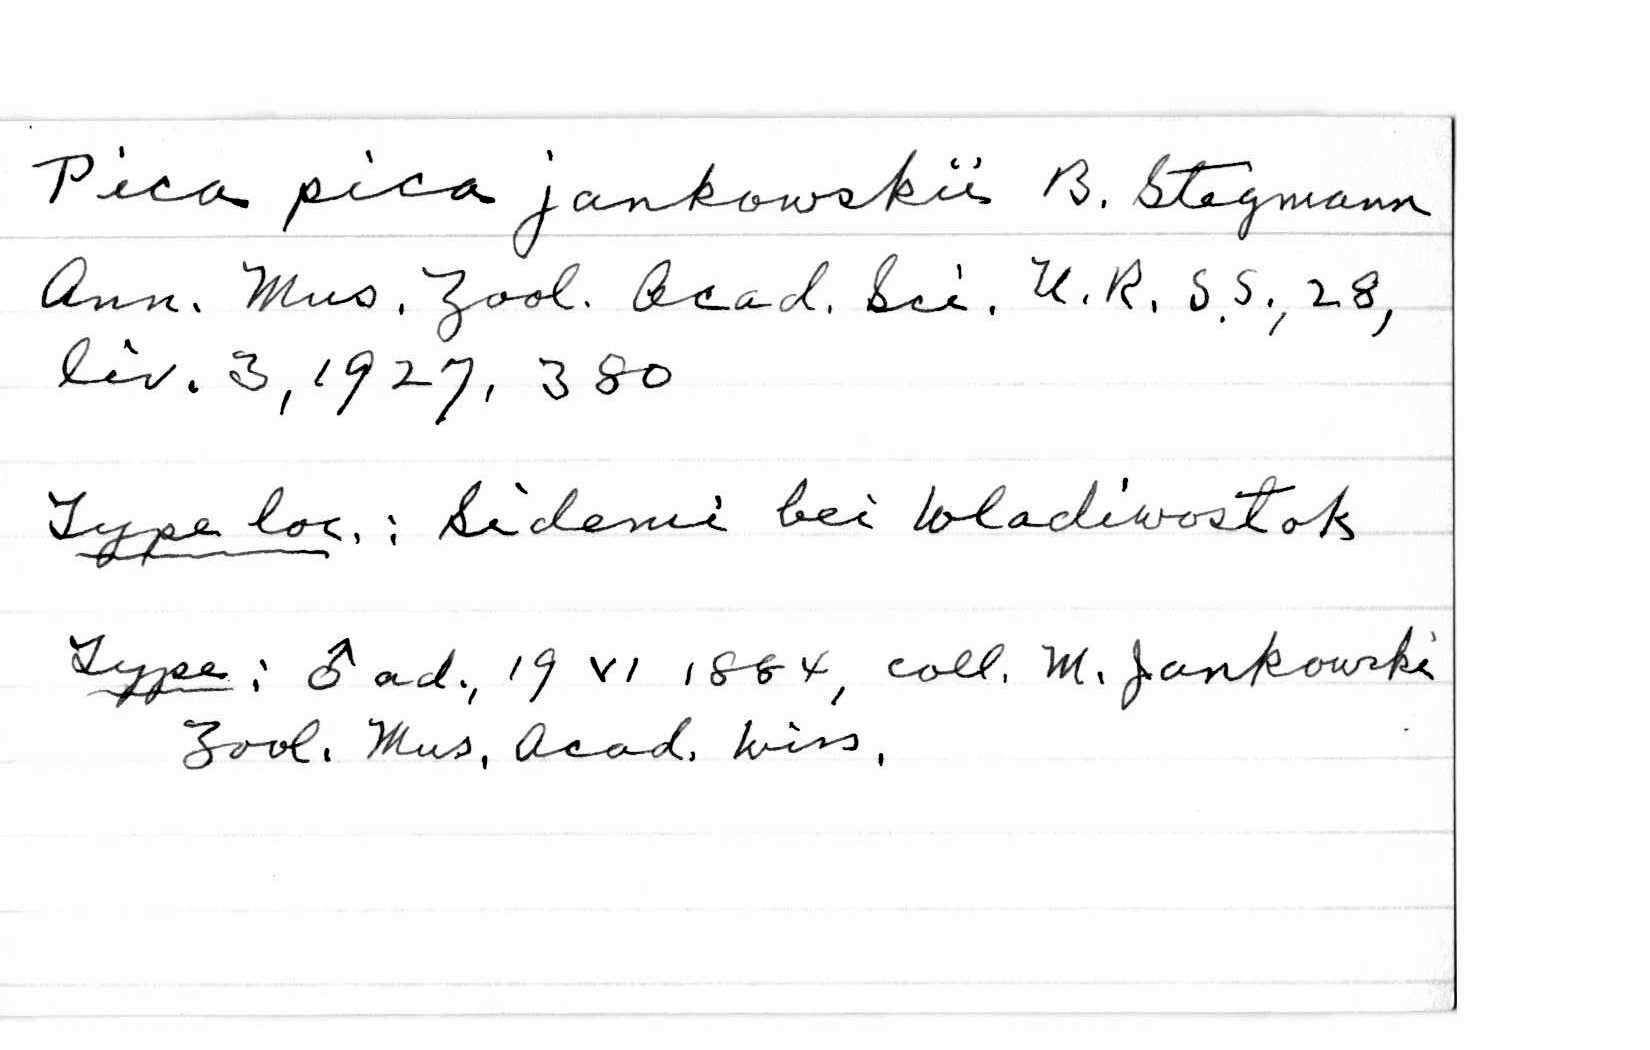 Pica pica jankowskii B. Stegmann
Ann. Mus. Zool. Acad. Sci. U.R.S.S., 28,
liv. 3, 1927, 380
Type loc.: Sidemi bei Wladiwostok
Type: ♂ ad., 19 VI 1884, coll. M. Jankowski
Zool. Mus. Acad. Wiss.